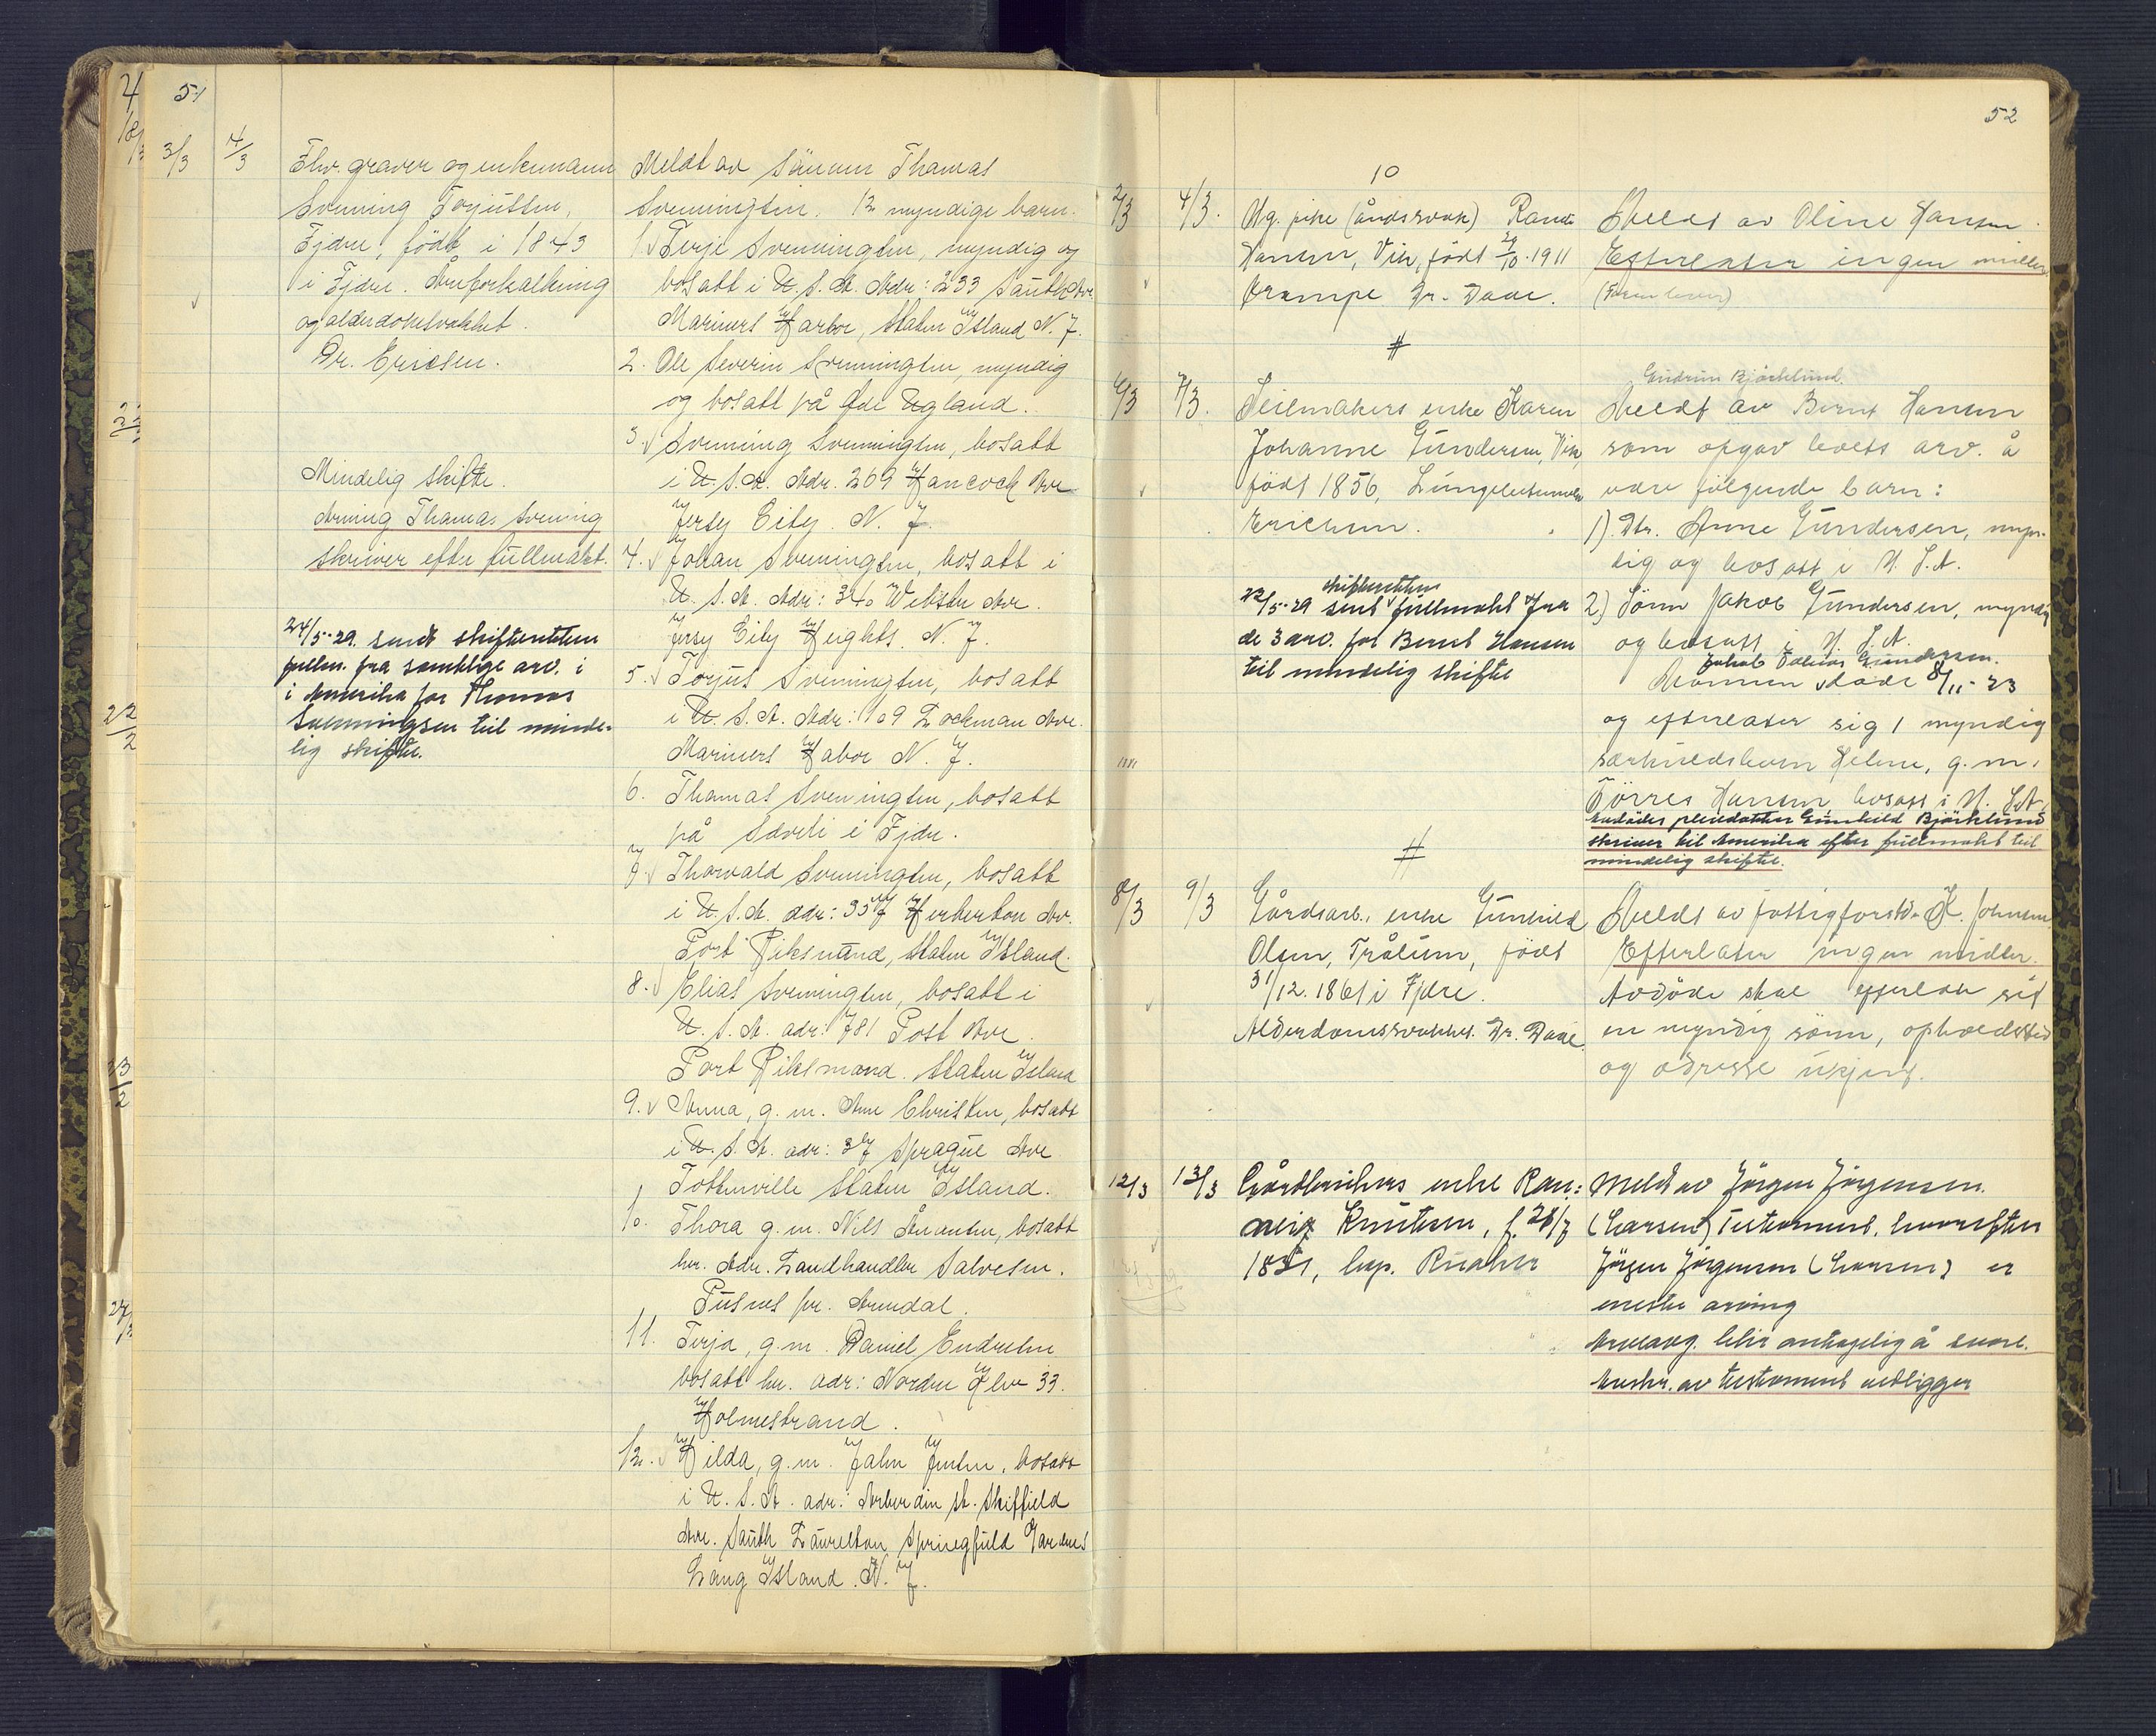 51
3/3
4/3
Fhv. graver og enkemann
Svenning Torjussen,
Fjære, født i 1843
i Fjære. Åreforkalkning
og alderdomssvakhet.
Dr. Ericsen.
Mindelig skifte.
Arving Thomas Svening
skriver efter fullmakt.
24/5-29. sendt skifteretten
fullm. fra samtlige arv. i
i Amerika for Thomas
Svenningsen til minde-
lig skifte.
Meldt av sønnen Thomas
Svenningsen. 12 myndige barn.
1. Terje Svenningsen, myndig og
bosatt i U.S.A. Adr: 233 South Ave.
Mariners Harbor, Staten Island N.J.
2. Ole Severin Svenningsen, myndig
og bosatt på Øde Ugland.
3. Svenning Svenningsen, bosatt
i U.S.A. Adr. 269 Hancock Ave
Jersy City. N. J.
4. Johan Svenningsen, bosatt i
U.S.A. Adr: 340 Webster Ave.
Jersy City Heights. N. J.
5. Torjus Svenningsen, bosatt
i U.S.A. Adr: 109 Lockman Ave.
Mariners Habor N. J.
6. Thomas Svenningsen, bosatt
på Sævli i Fjære.
7. Thorvald Svenningsen, bosatt
i U.S.A. adr: 337 Herberton Av.
Port Riksmand, Staten Island.
8. Elias Svenningsen, bosatt i
U.S.A. adr: 781 Post Ave.
Port Riksmand. Staten Island
9. Anna, g.m. Ame Christen, bosatt
i U.S.A. adr: 37 Sprague Ave
Tottenville Staten Island.
10. Thora g.m. Nils Amundsen, bosatt
her. Adr. Landhandler Salvesen.
Pusnes pr. Arendal.
11. Terja, g.m. Daniel Endresen
bosatt her. adr: Nordre Gbr 33.
Holmestrand.
12. Hilda, g.m. John Jensen, bosatt
i U.S.A. adr: Arberdin st. Skiffield
Ave. South Laurelton Springfield Gardnes
Long Island. N. J.
52
10
2/3
4/3.
Ug. pike (åndssvak) Randi
Hansen, Vik, født 29/10.1911
Krampe Dr. Daae.
Meldt av Oline Hansen.
Efterlater ingen midler.
#
6/3
7/3.
Seilmakers enke Karen
Johanne Gundersen, Vik,
født 1856, Lungebetennelse
Erichsen.
22/5-29 sendt skifteretten fullmakt fra
de 3 arv. for Bernt Hansen
til mindelig skifte
Gudrun Bjørklund.
Meldt av Bernt Hansen
som opgav boets arv. å
være følgende barn:
1) Dtr. Anne Gundersen, myn-
dig og bosatt i U.S.A.
2) Sønn Jakob Gundersen, myndig
og bosatt i U.S.A.
Jakob Tobias Gundersen.
Mannen døde 8/11-23
og efterlater sig 1 myndig
særkuldsbarn Helene, g.m.
Tørres Hansen bosatt i U.S.A.
Avdødes pleiedatter Gunhild Bjørklund
skriver til Amerika efter fullmakt til
mindelig skifte.
#
8/3
9/3
Gårdsarb., enke Gunhild
Olsen, Trålum, født
31/12. 1861 i Fjære.
Alderdomssvakhet. Dr. Daae.
Meldt av fattigforstd. K. Johnsen
Efterlater ingen midler.
Avdøde skal efterlate sig
en myndig sønn, opholdsted
og adresse ukjent.
12/3
13/3
Gårdbrukers enke Ran:
veig Knutsen, f. 28/7
1851, bop. Ruaker
Meldt av Jørgen Jørgensen.
(Larsen) Testament, hvorefter
Jørgen Jørgensen (Larsen) er
eneste arving
Arveavg. blir antagelig å svare.
Avskr. av testament vedligger